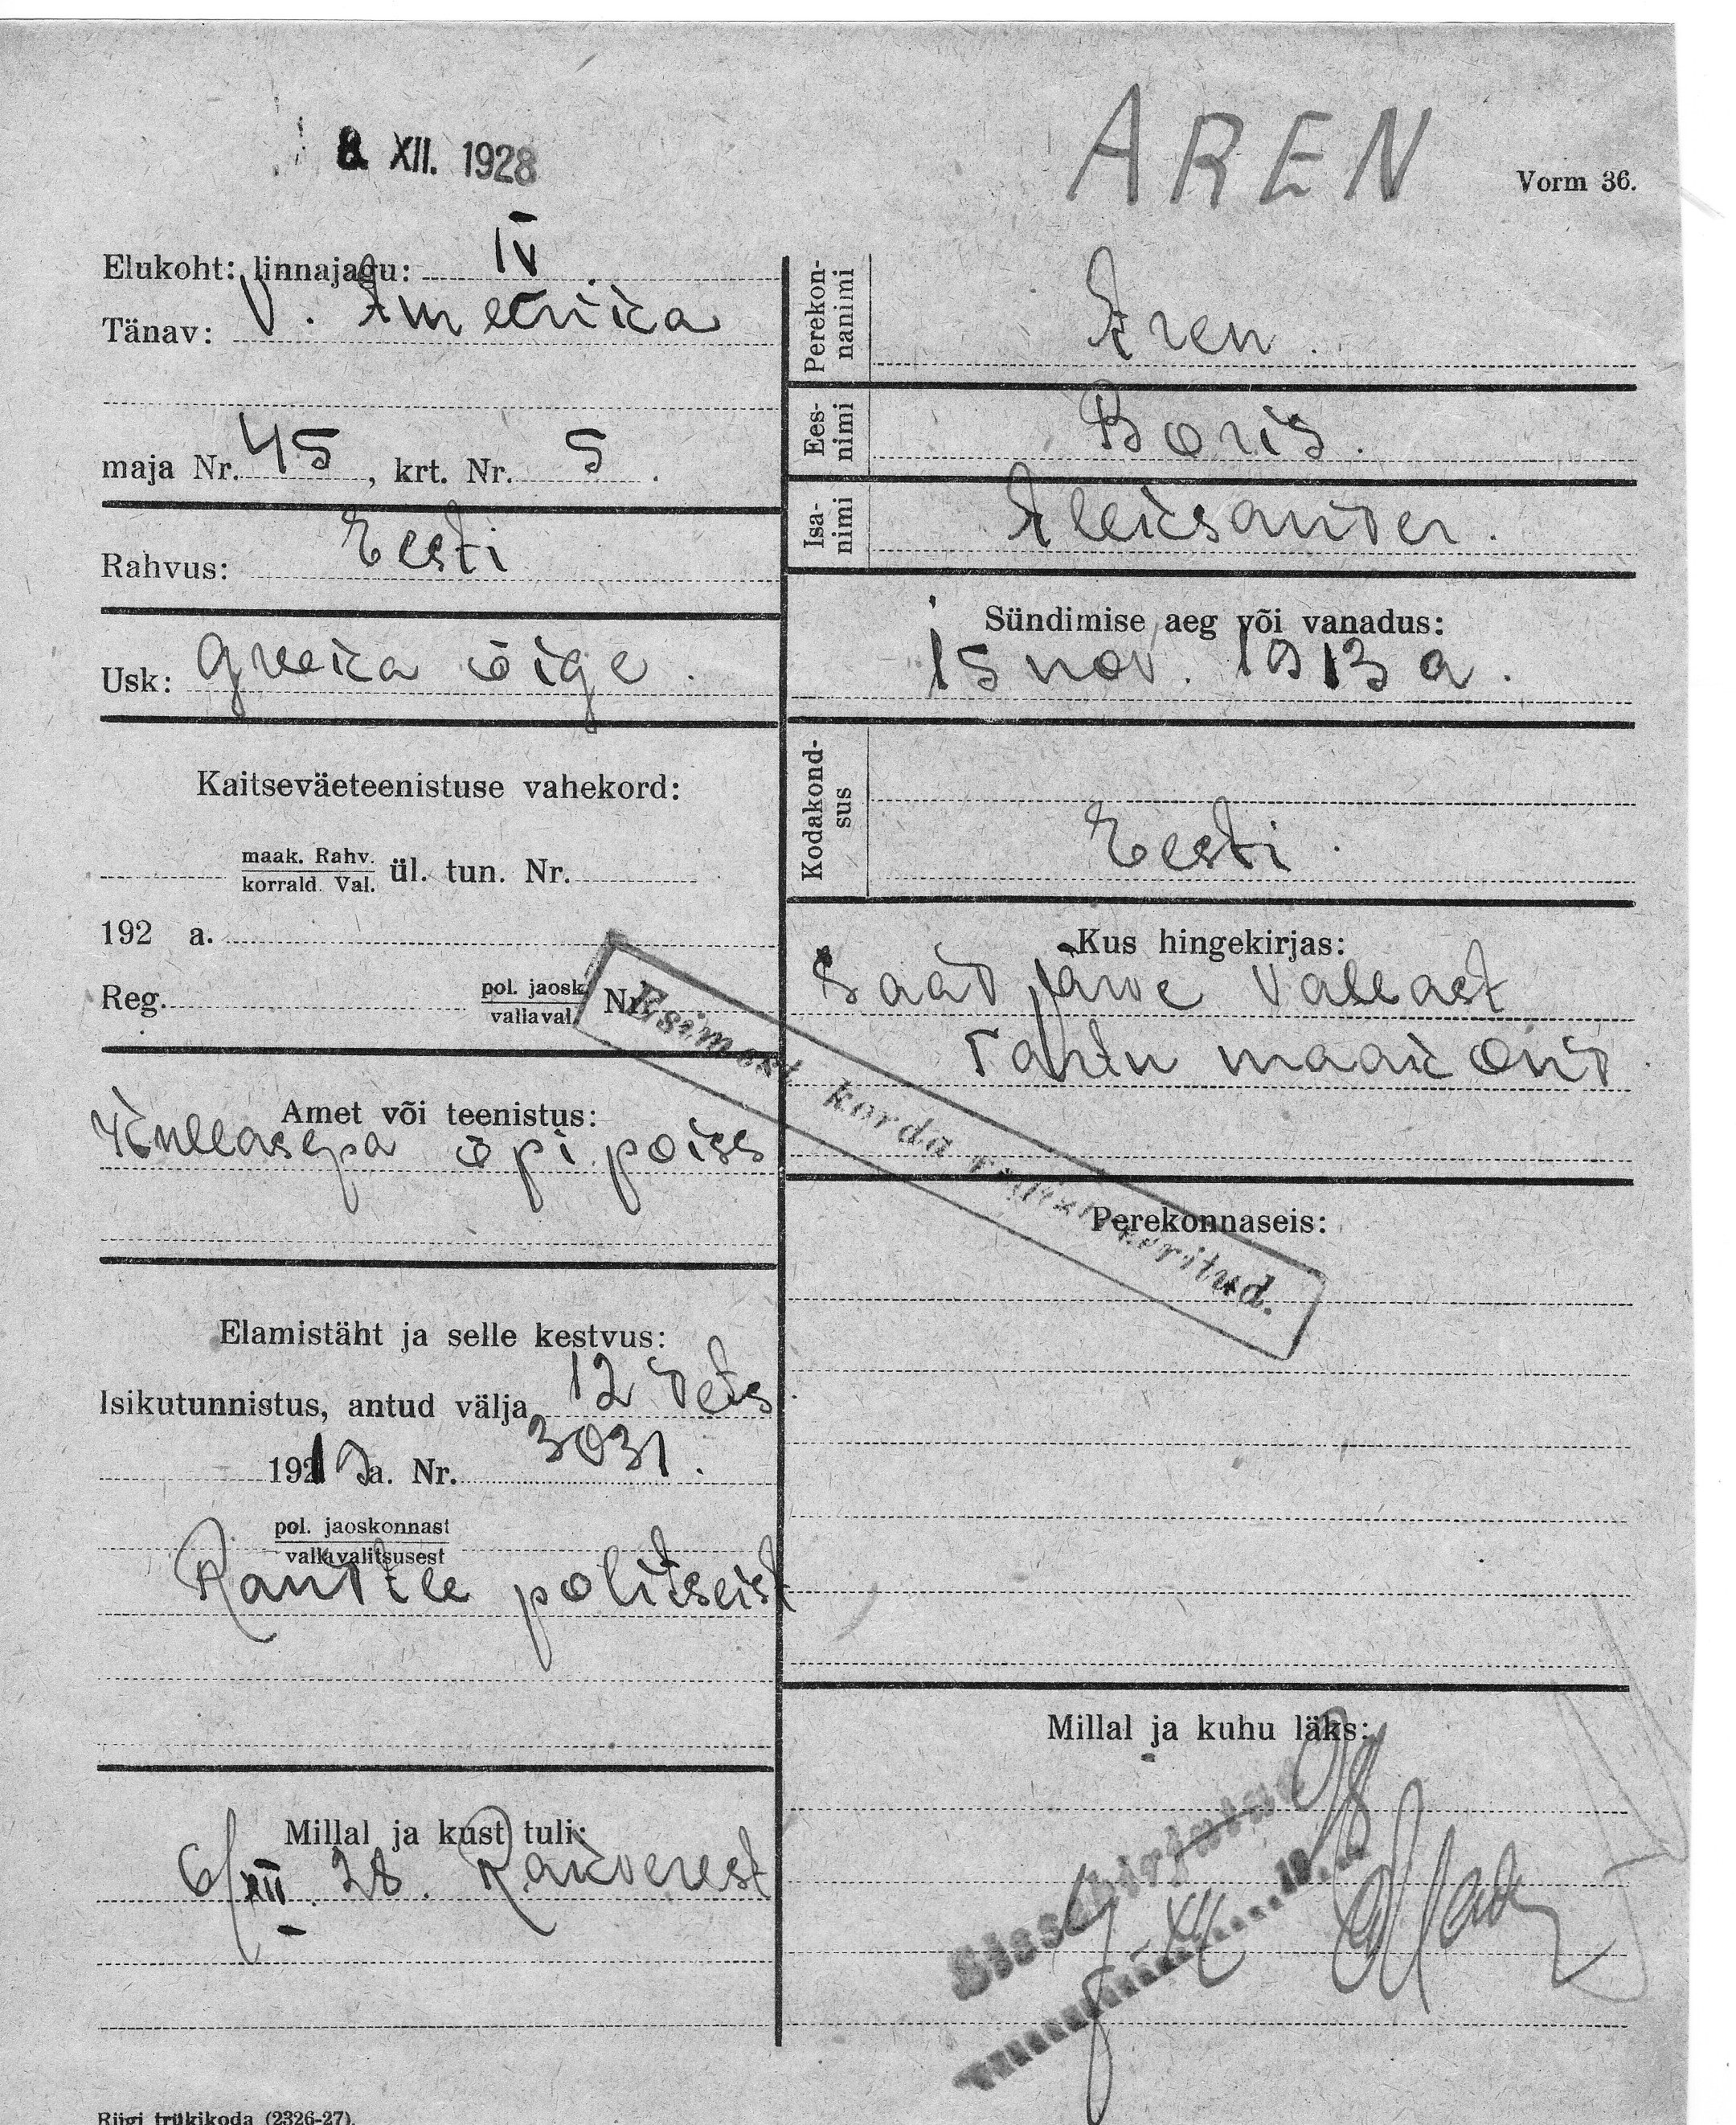 8 XII. 1928
AREN
Vorm 36.
Elukoht: linnajagu: IV
Tänav: V. Ameerika
maja Nr. 45, krt. Nr. 5.
Rahvus: Eesti
Usk: Greeka õige.
Kaitseväeteenistuse vahekord:
maak. Rahv.
korrald. Val. ül. tun. Nr.
192 a.
Reg. pol. jaosk.
vallaval. Nr.
Amet või teenistus:
Kullasepa õpi poiss
Elamistäht ja selle kestvus:
Isikutunnistus, antud välja 12 Dets
192 a. Nr. 3031.
pol. jaoskonnast
vallavalitsusest
Raudtee politseist
Millal ja kust tuli:
6/XII. 28. Rakverest
Perekon-
nanimi
Aren.
Ees-
nimi
Boris.
Isa-
nimi
Aleksander.
Sündimise aeg või vanadus:
15 nov. 1913 a.
Kodakond-
sus
Eesti.
Kus hingekirjas:
Saadjärve Vallast
Tartu maakond
Esimest korda registreeritud.
Perekonnaseis:
Millal ja kuhu läks:
Sissekirjutud
Riigi trükikoda (2326-27).